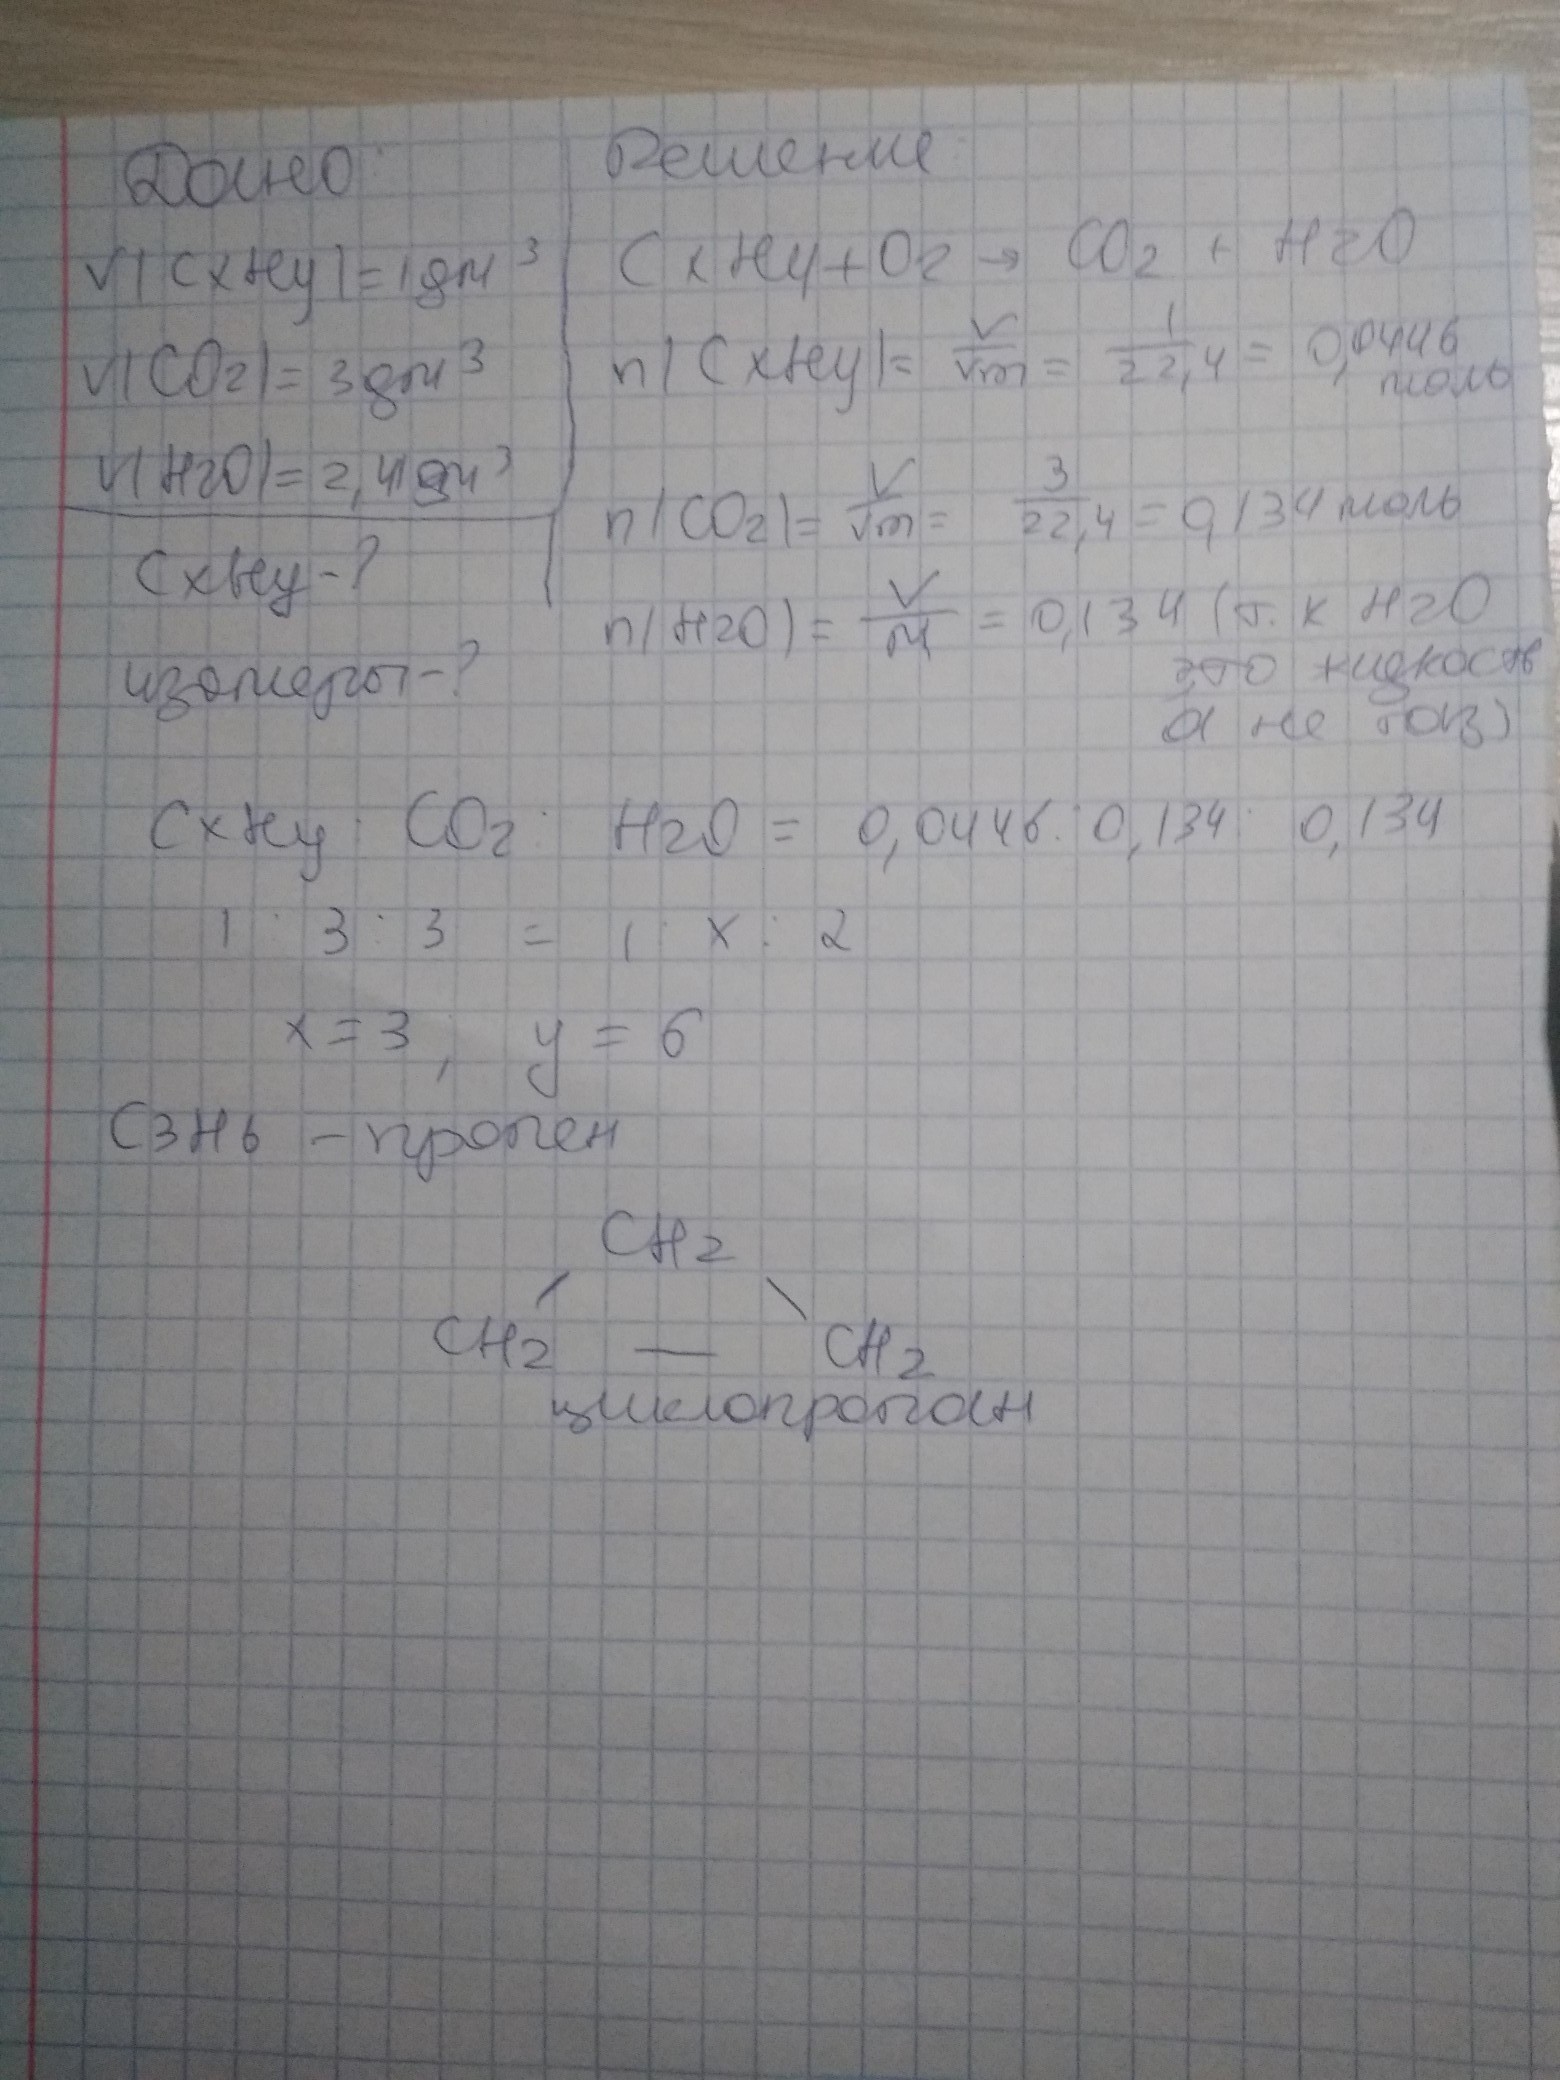 Дано:
V(CxHy)=1дм³
V(CO2)=3дм³
V(H2O)=2,41дм³
CxHy-?
изомеры-?
Решение:
CxHy+O2→ CO2 + H2O
n(CxHy)= V/Vm = 1/22,4 = 0,0446 моль
n(CO2)= V/Vm = 3/22,4 = 0,134 моль
n(H2O)= V/M = 0,134 (т.к H2O
это жидкость
а не газ)
CxHy : CO2 : H2O = 0,0446 : 0,134 : 0,134
1 : 3 : 3 = 1 : x : 2
x=3, y=6
C3H6 - пропен
CH2
CH2 — CH2
циклопропан